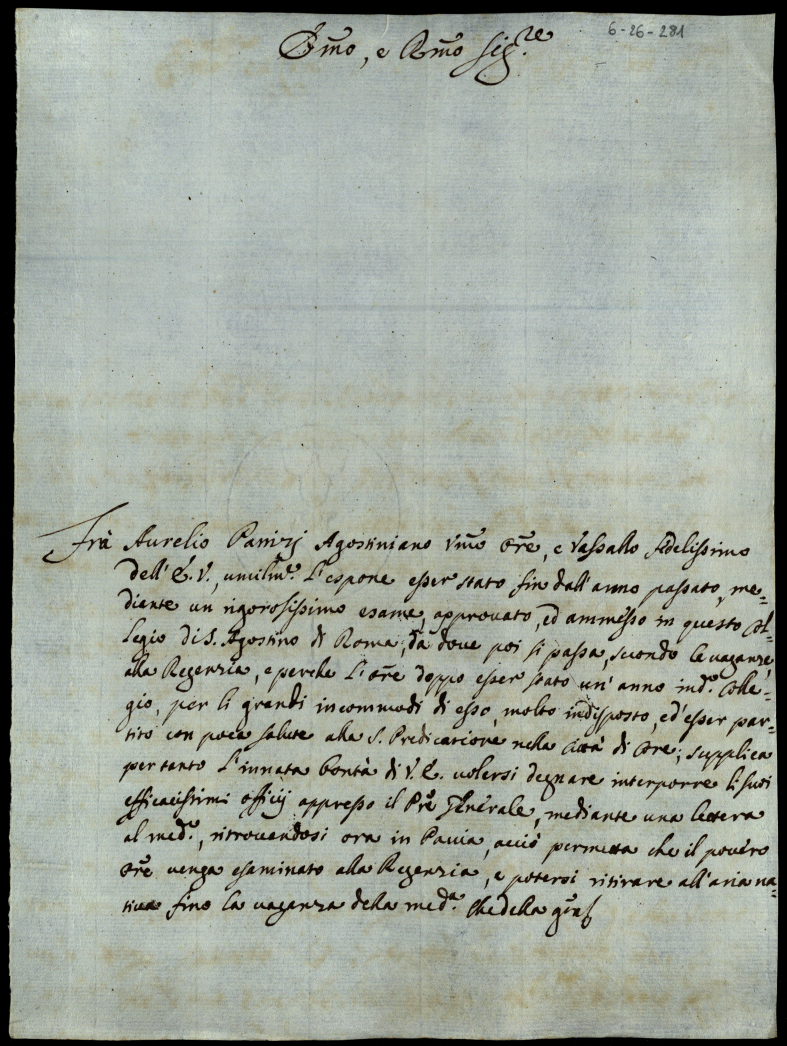 6-26-281
Emo, e Rmo Sig.re
Frà Aurelio Panizj Agostiniano Vmo Ore, e Vassallo fidelissimo
dell'E.V., umilm.e L'espone esser stato fin dall'anno passato, me=
diante un rigorosissimo esame, approvato, ed ammesso in questo Col=
legio di S. Agostino di Roma, dà dove poi si passa, secondo le vaganze,
alla Regenzia, e perche L'Ore doppo esser stato un'anno in d.o Colle=
gio, per li grandi incommodi di esso, molto indisposto, ed'esser par=
tito con poca salute alla S. Predicazione nella Città di Ore; supplica
per tanto L'innata bontà di V.E. volersi degnare interporre li suoi
efficacissimi officij appresso il Pre Generale, mediante una lettera
al med.o, ritrovandosi ora in Pavia, acciò permetta che il povero
Ore venga esaminato alla Regenzia, e potersi ritirare all'aria na=
tiva fino la vaganza della med.a Che della gra